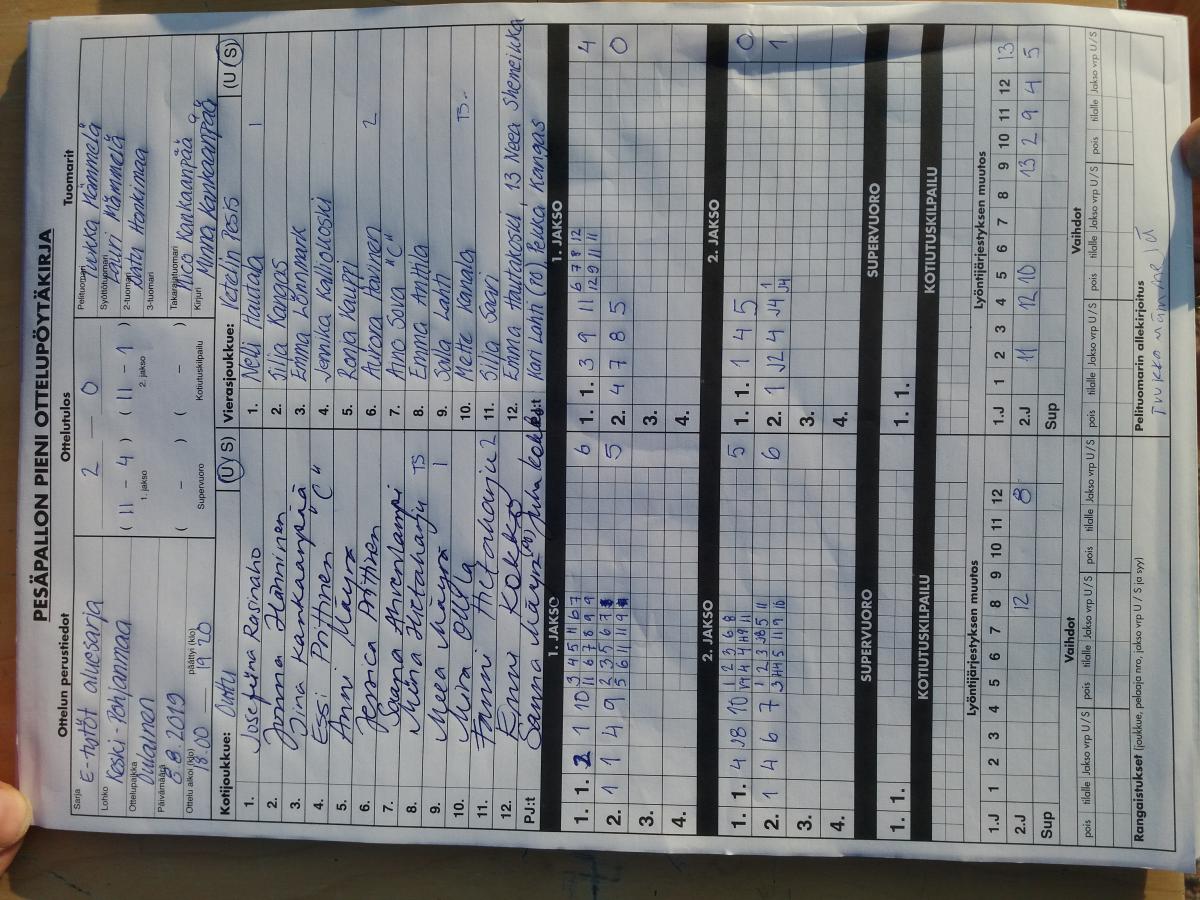 PESÄPALLON PIENI OTTELUPÖYTÄKIRJA
Ottelun perustiedot
Ottelutulos
Tuomarit
Sarja E-tytöt aluesarja
Lohko Keski-Pohjanmaa
Ottelupaikka Oulainen
Päivämäärä 8.8.2019
Ottelu alkoi (klo) 18.00 päättyi (klo) 19 20
2 — 0
( 11 - 4 ) ( 11 - 1 )
1. jakso 2. jakso
( - ) ( - )
Supervuoro Kotiutuskilpailu
Pelituomari Tuukka Mämmelä
Syöttötuomari Lauri Mämmelä
2-tuomari Honkimaa
3-tuomari
Takarajatuomari Nico Kankaanpää
Kirjuri Minna Kankaanpää
Kotijoukkue: Ountu (U S)
1. Josefiina Rasinaho
2. Jonna Hänninen
3. Dina Kankaanpää
4. Essi Prittinen "C"
5. Anni Mäyrä
6. Jenica Prittinen
7. Saana Ahvenlampi
8. Minna Hietaharju TS
9. Neea Mäyrä 1
10. Miira Ollila
11. Fanni Hietaharju 2
12. Emmi Kokko
PJ:t Sanna Mäyrä (PJ) Juha Kokko
Vierasjoukkue: Vetelin Pesis (U S)
1. Nelli Hautala 1
2. Silja Kangas
3. Emma Lönnmark
4. Jenika Kaliokoski
5. Ronja Kauppi
6. Aurora Hävinen 2
7. Aino Salva "C"
8. Emma Anttila
9. Salla Lahti
10. Mette Kainala TS-
11. Silja Saari
12. Emma Hautakoski, 13 Neea Shemeikka
PJ:t Kari Lahti (PJ) Pekka Kangas
1. JAKSO
1. JAKSO
1. 1. 2 1 10 6
2. 1 4 9 5
3.
4.
1. 1. 3 9 11 4
2. 4 7 8 5 0
3.
4.
2. JAKSO
2. JAKSO
1. 1. 4 J8 10 5
2. 1 4 6 7 6
3.
4.
1. 1. 1 4 5 0
2. 1 J2 4 J4 1
3.
4.
SUPERVUORO
SUPERVUORO
1. 1.
1. 1.
KOTIUTUSKILPAILU
KOTIUTUSKILPAILU
Lyöntijärjestyksen muutos
Lyöntijärjestyksen muutos
1.J 1 2 3 4 5 6 7 8 9 10 11 12
2.J 12 8
Sup
1.J 1 2 3 4 5 6 7 8 9 10 11 12 13
2.J 11 12 10 13 2 9 4 5
Sup
Vaihdot
Vaihdot
pois tilalle Jakso vrp U/S pois tilalle Jakso vrp U/S pois tilalle Jakso vrp U/S
pois tilalle Jakso vrp U/S pois tilalle Jakso vrp U/S pois tilalle Jakso vrp U/S
Rangaistukset (joukkue, pelaaja nro, jakso vrp U/S ja syy)
Pelituomarin allekirjoitus
Tuukka Mämmelä